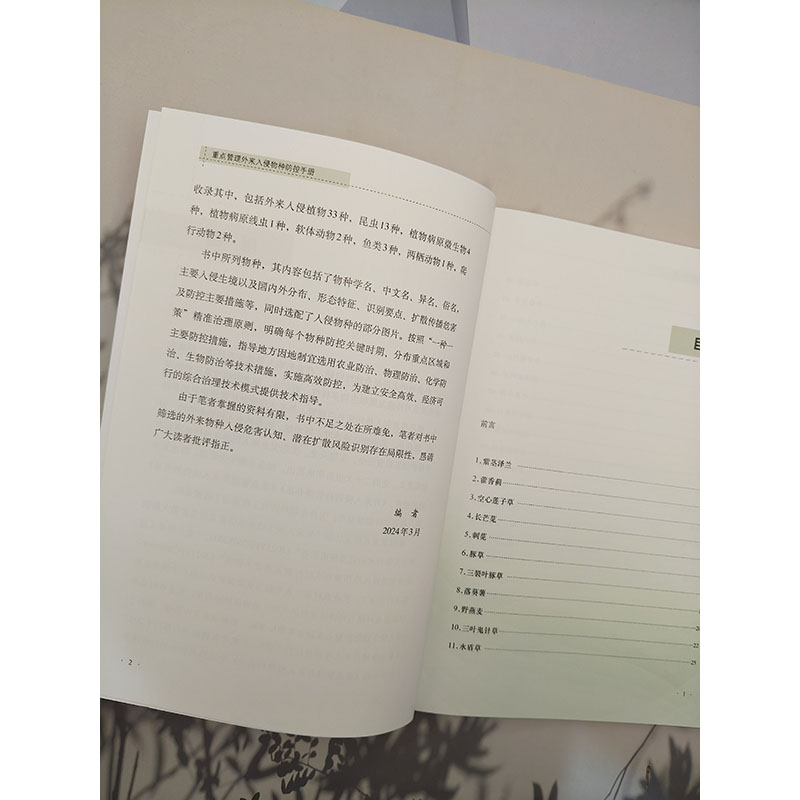 重点管理外来入侵物种防控手册
收录其中，包括外来入侵植物33种，昆虫13种，植物病原微生物4
种，植物病原线虫1种，软体动物2种，鱼类3种，两栖动物1种，爬
行动物2种。
书中所列物种，其内容包括了物种学名、中文名、异名、俗名，
主要入侵生境以及国内外分布、形态特征、识别要点、扩散传播危害
及防控主要措施等，同时选配了入侵物种的部分图片。按照“一种一
策”精准治理原则，明确每个物种防控关键时期、分布重点区域和
主要防控措施，指导地方因地制宜选用农业防治、物理防治、化学防
治、生物防治等技术措施，实施高效防控，为建立安全高效、经济可
行的综合治理技术模式提供技术指导。
由于笔者掌握的资料有限，书中不足之处在所难免，笔者对书中
筛选的外来物种入侵危害认知、潜在扩散风险识别存在局限性，恳请
广大读者批评指正。
编 者
2024年3月
· 2 ·
前言
1. 紫茎泽兰
2. 藿香蓟
3. 空心莲子草
4. 长芒苋
5. 刺苋
6. 豚草
7. 三裂叶豚草
8. 落葵薯
9. 野燕麦 20
10. 三叶鬼针草 22
11. 水盾草 25
· 1